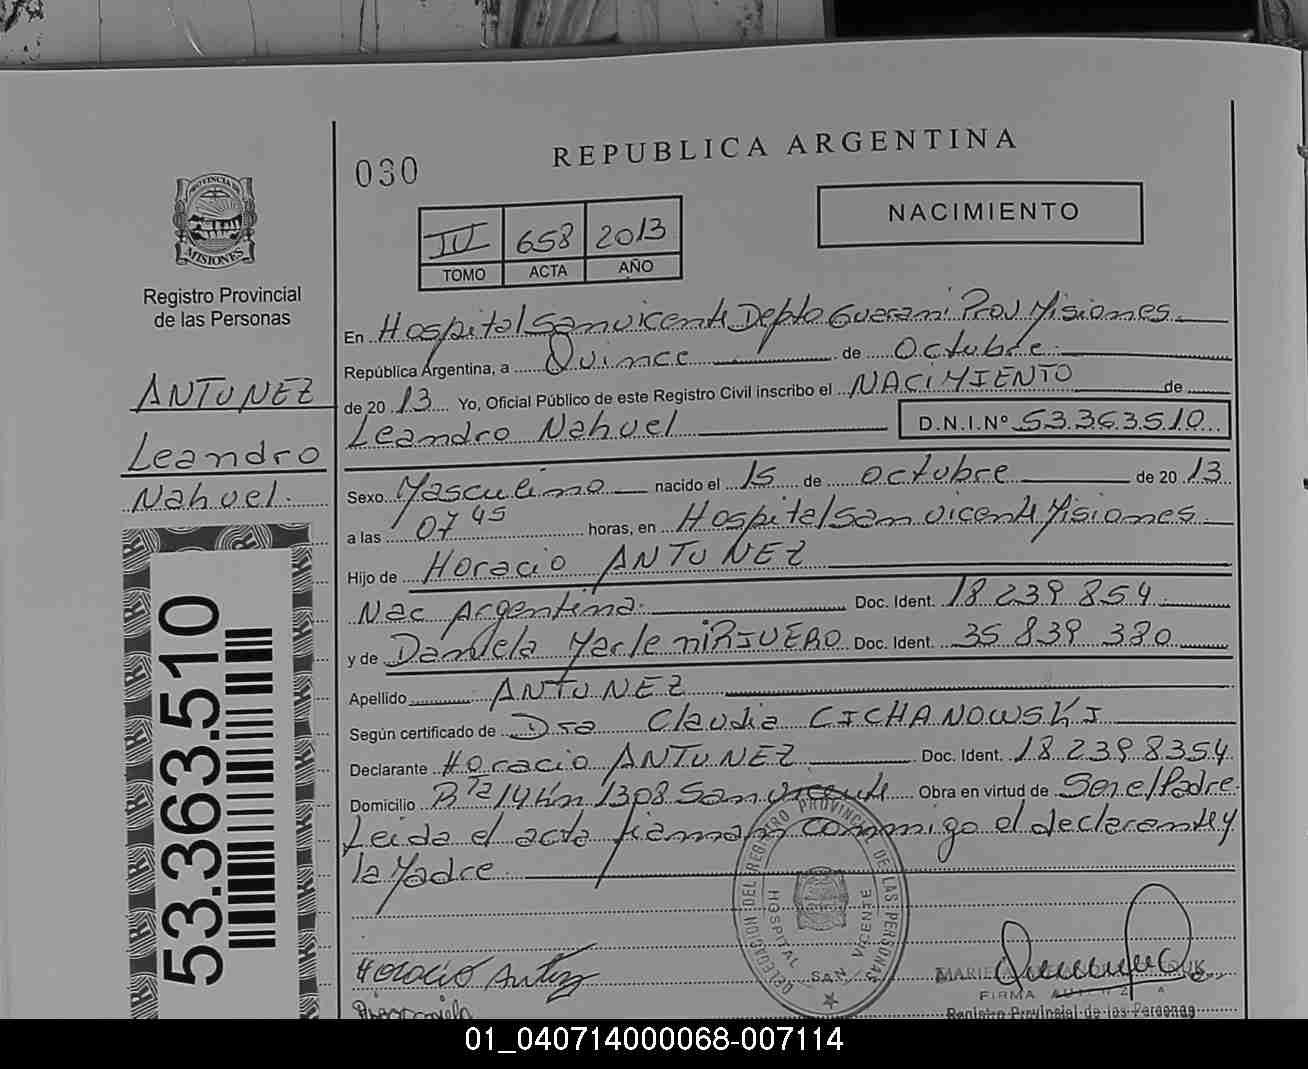 030
REPUBLICA ARGENTINA
NACIMIENTO
PROVINCIA DE
MISIONES
Registro Provincial
de las Personas
IV 658 2013
TOMO ACTA AÑO
En Hospital San vicente Depto Guarani Prov Misiones
República Argentina, a Quince de Octubre
de 20 13 Yo, Oficial Público de este Registro Civil inscribo el NACIMIENTO de
Leandro Nahuel D.N.I.Nº 53.363.510
ANTUNEZ
Leandro
Nahuel.
Sexo Masculino nacido el 15 de octubre de 20 13
a las 07 45 horas, en Hospital San vicente Misiones
Hijo de Horacio ANTUNEZ
Nac Argentina. Doc. Ident. 18 239 854
y de Daniela Marleni RIVERO Doc. Ident. 35 839 330
Apellido ANTUNEZ
Según certificado de Dra Claudia CICHANOWSKI
Declarante Horacio ANTUNEZ Doc. Ident. 18 239 8354
Domicilio R ta 14 Km 1308 San vicente Obra en virtud de Ser el Padre
Leida el acta firman conmigo el declarante y
la Madre
53.363.510
DELEGACION DEL REGISTRO PROVINCIAL DE LAS PERSONAS
HOSPITAL SAN VICENTE
Horacio Antunez
FIRMA
Registro Provincial de las Personas
01_040714000068-007114